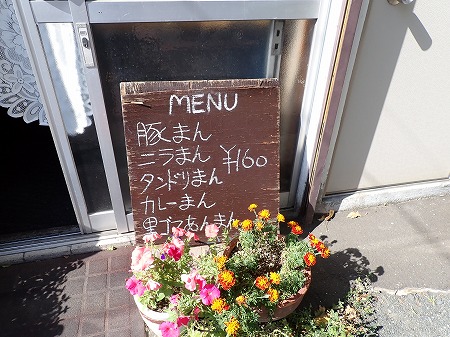 MENU
豚まん
ニラまん ¥160
タンドリまん
カレーまん
黒ゴマあんまん